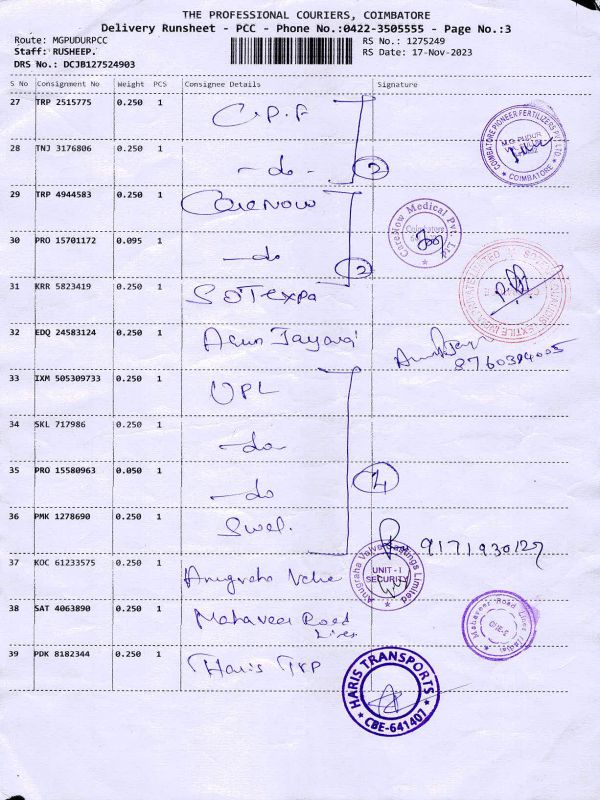 THE PROFESSIONAL COURIERS, COIMBATORE
Delivery Runsheet - PCC - Phone No.:0422-3505555 - Page No.:3
Route: MGPUDURPCC RS No.: 1275249
Staff: RUSHEEP. RS Date: 17-Nov-2023
DRS No.: DCJB127524903
S No Consignment No Weight PCS Consignee Details Signature
27 TRP 2515775 0.250 1 C.P.F
28 TNJ 3176806 0.250 1 -do- 2
COIMBATORE PIONEER FERTILIZERS PVT LTD
M.G. PUDUR
COIMBATORE
29 TRP 4944583 0.250 1 CareNow
30 PRO 15701172 0.095 1 -do 2
CareNow Medical Pvt. Ltd
Coimbatore
31 KRR 5823419 0.250 1 SOTexpa
32 EDQ 24583124 0.250 1 Arun Jayavi
8760394005
33 IXM 505309733 0.250 1 UPL
34 SKL 717986 0.250 1 -do
35 PRO 15580963 0.050 1 -do 4
36 PMK 1278690 0.250 1 Swel. 9171930127
37 KOC 61233575 0.250 1 Anugraha Valve
Anugraha Valve Castings Limited
UNIT - I
SECURITY
38 SAT 4063890 0.250 1 Mahaveer Road
Lines
Mahaveer Road Lines
39 PDK 8182344 0.250 1 Haris TRP
HARIS TRANSPORTS
CBE-641407